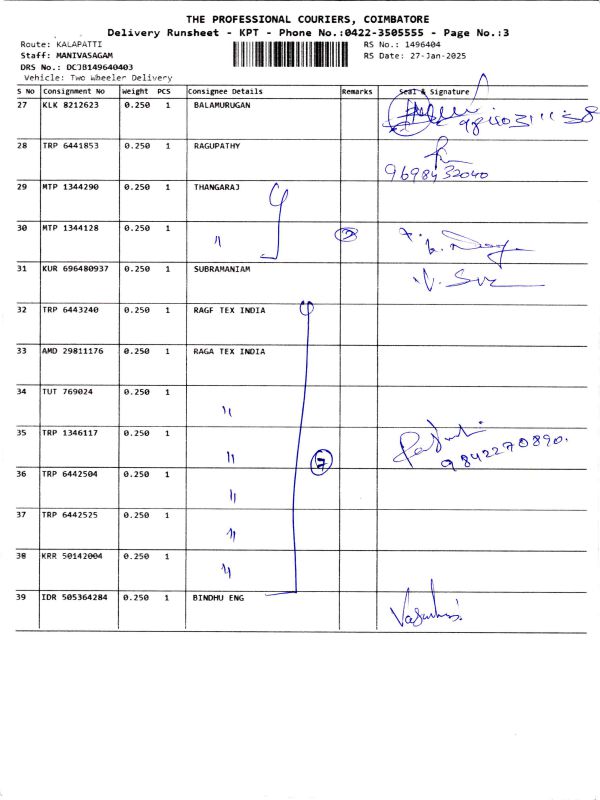 THE PROFESSIONAL COURIERS, COIMBATORE
Delivery Runsheet - KPT - Phone No.:0422-3505555 - Page No.:3
Route: KALAPATTI RS No.: 1496404
Staff: MANIVASAGAM RS Date: 27-Jan-2025
DRS No.: DCJB149640403
Vehicle: Two Wheeler Delivery
S No Consignment No Weight PCS Consignee Details Remarks Seal & Signature
27 KLK 8212623 0.250 1 BALAMURUGAN
28 TRP 6441853 0.250 1 RAGUPATHY
9698432040
29 MTP 1344290 0.250 1 THANGARAJ
30 MTP 1344128 0.250 1 〃
31 KUR 696480937 0.250 1 SUBRAMANIAM
32 TRP 6443240 0.250 1 RAGF TEX INDIA
33 AMD 29811176 0.250 1 RAGA TEX INDIA
34 TUT 769024 0.250 1 〃
35 TRP 1346117 0.250 1 〃 7 9842270890.
36 TRP 6442504 0.250 1 〃
37 TRP 6442525 0.250 1 〃
38 KRR 50142004 0.250 1 〃
39 IDR 505364284 0.250 1 BINDHU ENG